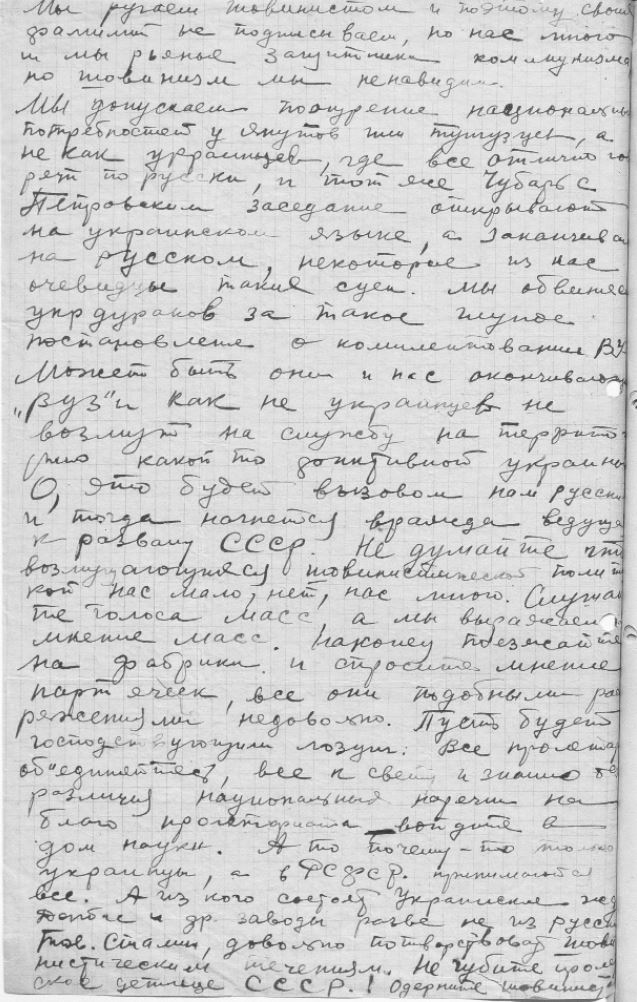 Мы ругаем шовинистом и поэтому своих
фамилий не подписываем, но нас много
и мы рьяные защитники коммунизма
но шовинизм мы ненавидим.
Мы допускаем поощрение национальн
потребностей у якутов или тунгузцев, а
не как украинцев, где все отлично го
рят по русски, и тот же Чубарь с
Петровским заседание открывают
на украинском языке, а заканчива
на русском, некоторые из нас
очевидцы такие сцен. Мы обвиняе
укрдураков за такое глупое
постановлене о комплектовании ВУ
Может быть они и нас окончивающ
"ВУЗ"и как не украинцев не
возмут на службу на террито
рию какой то фиктивной украины
О, это будет вызовом нам русски
и тогда начнется вражда ведуща
к развалу СССР. Не думайте что
возмущающихся шовинистической полит
кой нас мало, нет, нас много. Слушай
те голоса масс, а мы выражаем
мнение масс. Наконец поезжайте
на фабрики и спросите мнение
парт ячеек, все они подобными рас
ряжениями недовольно. Пусть будет
господствующим лозунг: Все пролетар
об"единяйтесь, все к свету и знанию без
различия национальных наречий на
благо пролетариата войдите в
дом науки. А то почему-то только
украинцы, а в РСФСР. принимаются
все. А из кого состоят Украинские
и др. заводы разве не из русски
Тов. Сталин, довольно потворствоват шови
нистическим течениям. Не губите проле
ское детище СССР.! Одерните шовинист